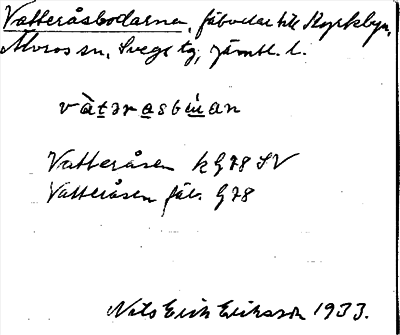 Vatteråsbodarna, fäbodar till Kyrkbyn,
Älvros sn, Svegs tg, Jämtl. l.
vàtərasbùan
Vatteråsen kG78 SV
Vatteråsen fäb. G78
Nils Erik Eriksson 1933.